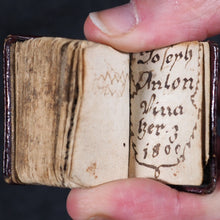 Joseph
Anton
Vina
her·z
1800